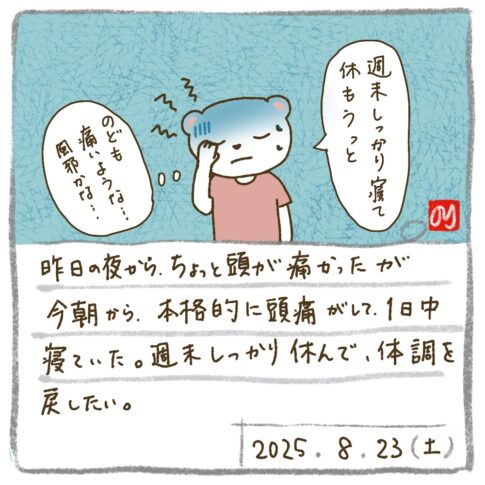 週末しっかり寝て
休もうっと
のども
痛いような…
風邪かな…
のり
昨日の夜から、ちょっと頭が痛かったが
今朝から、本格的に頭痛がして、1日中
寝ていた。週末しっかり休んで、体調を
戻したい。
2025.8.23(土)